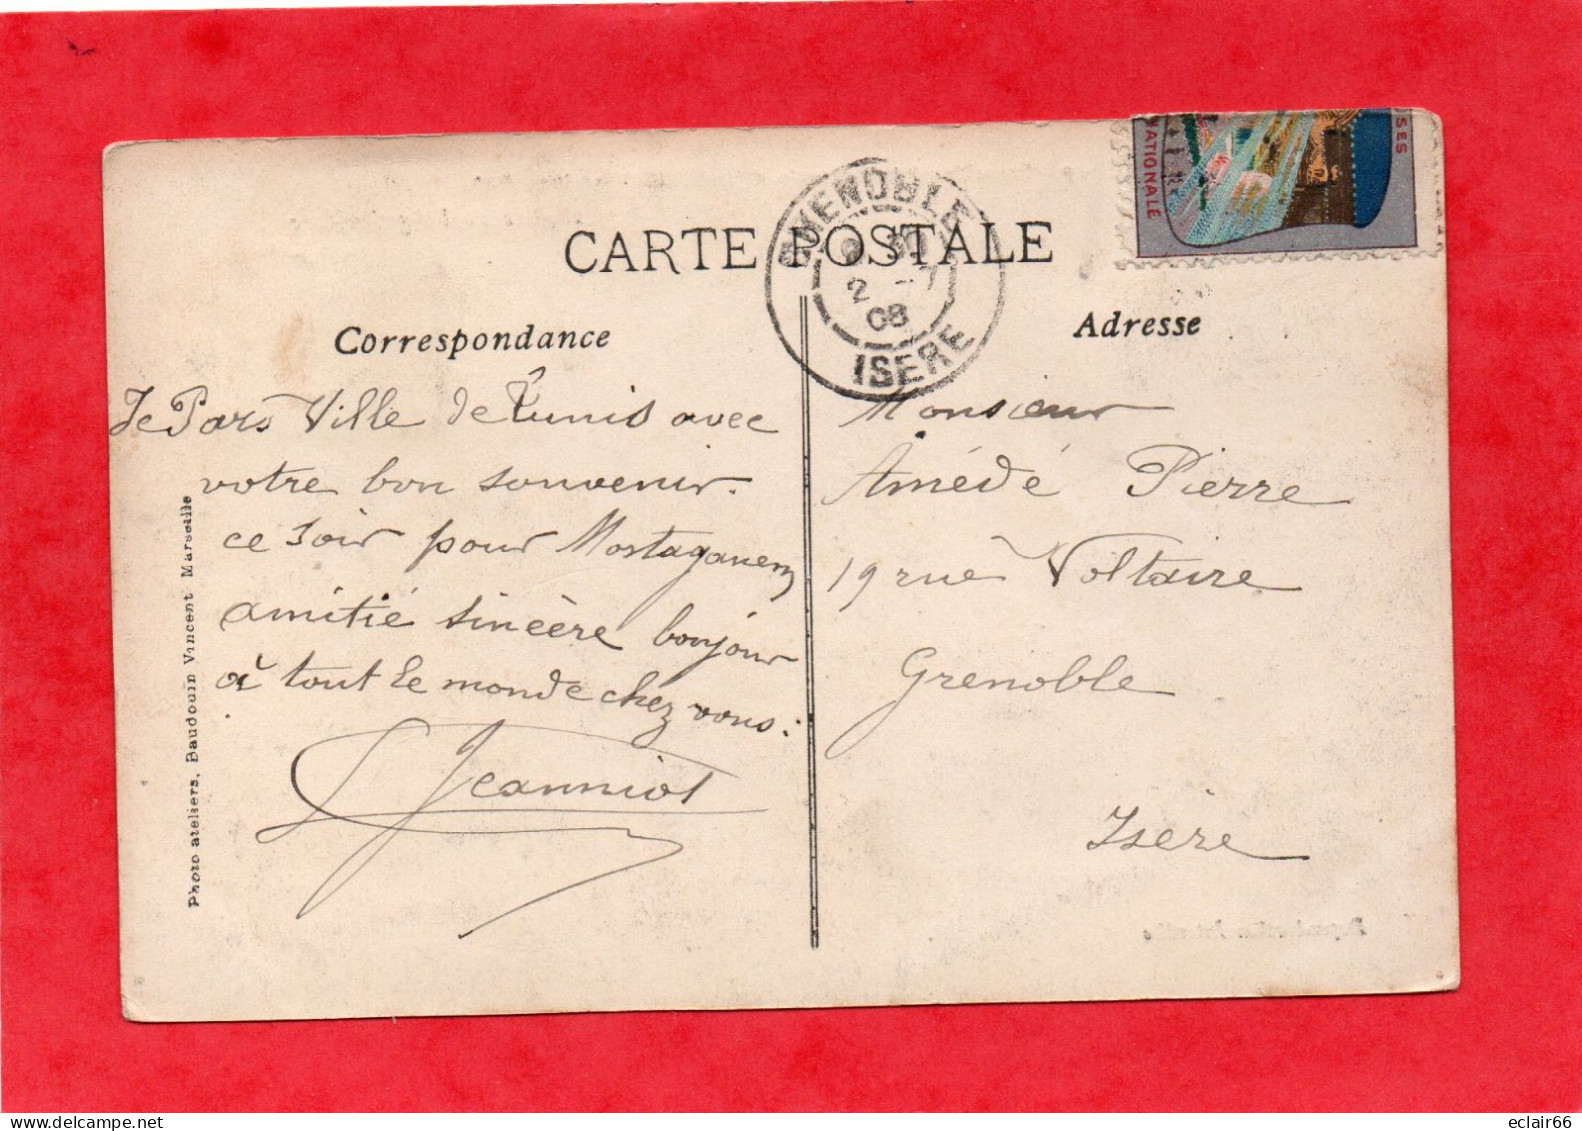 CARTE POSTALE
GRENOBLE
2 -7
08
ISERE
SES
NATIONALE
Correspondance
Je Pars Ville de Tunis avec
votre bon souvenir.
ce soir pour Mostaganem
amitié sincère bonjour
à tout le monde chez vous:
Jeanniot
Photo ateliers, Baudouin Vincent Marseille
Adresse
Monsieur
Amédé Pierre
19 rue Voltaire
Grenoble
Isère
eclair66